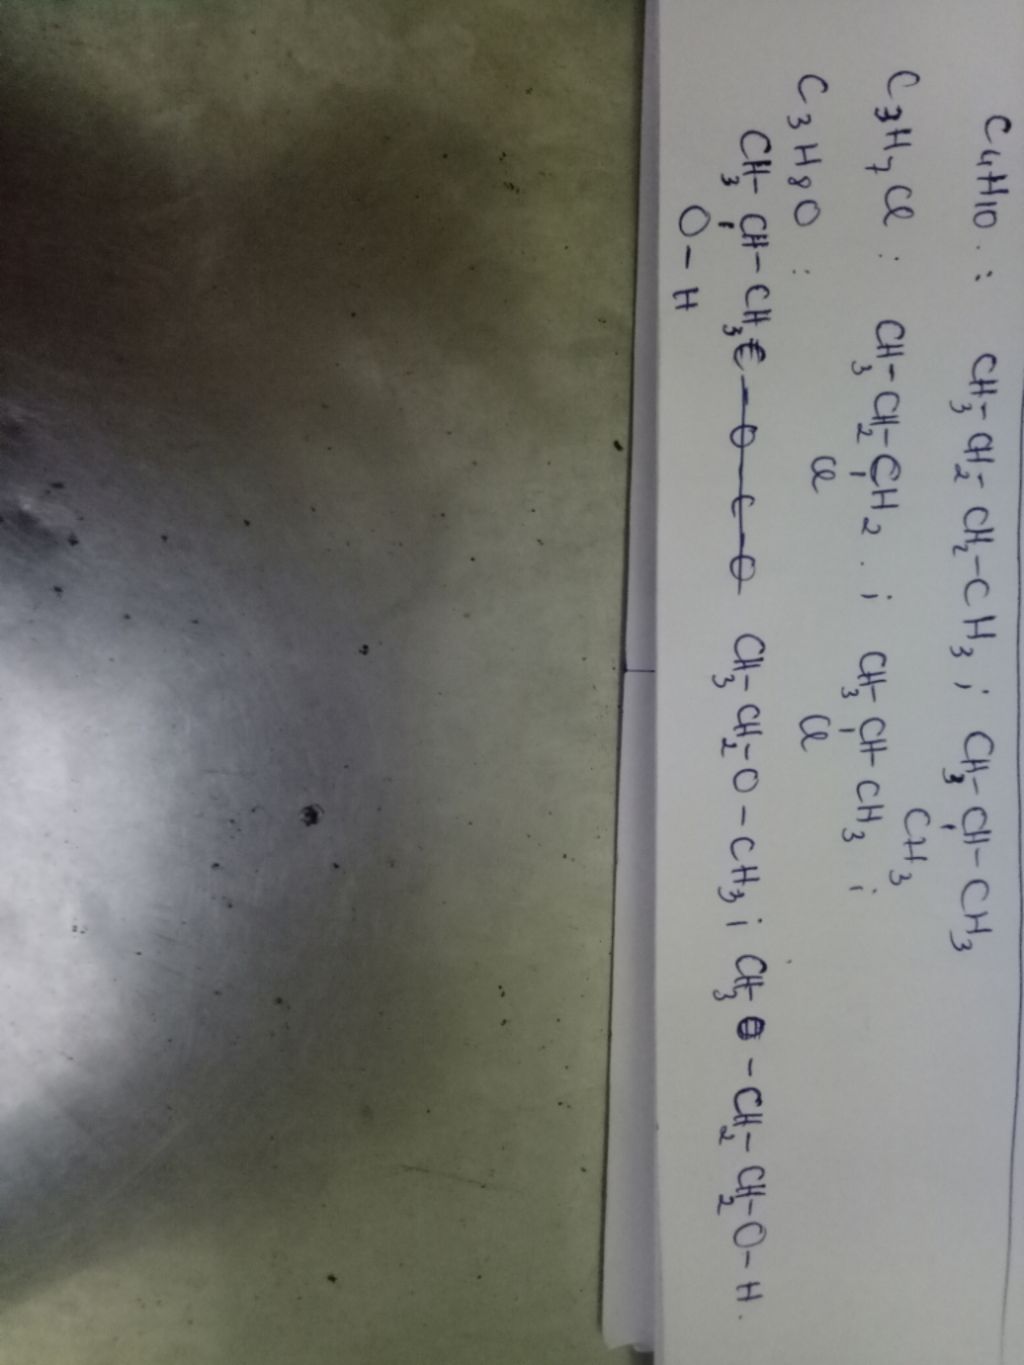 C4H10. : CH3-CH2-CH2-CH3 ; CH3-CH-CH3
CH3
C3H7Cl : CH3-CH2-CH2. ; CH3-CH-CH3 ;
Cl Cl
C3H8O :
CH3-CH-CH3 CH3-CH2-O-CH3 ; CH3-CH2-CH2-O-H.
O-H